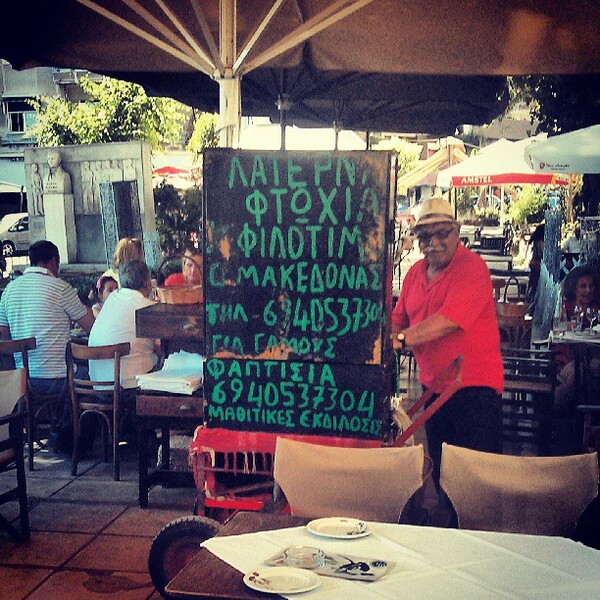 ΛΑΤΕΡΝΑ
ΦΤΩΧΙΑ
ΦΙΛΟΤΙΜ
Ο ΜΑΚΕΔΟΝΑΣ
ΤΗΛ 6940537304
ΓΙΑ ΓΑΜΟΥΣ
ΦΑΠΤΙΣΙΑ
6940537304
ΜΑΘΙΤΙΚΕΣ ΕΚΔΙΛΟΣΙΣ
AMSTEL